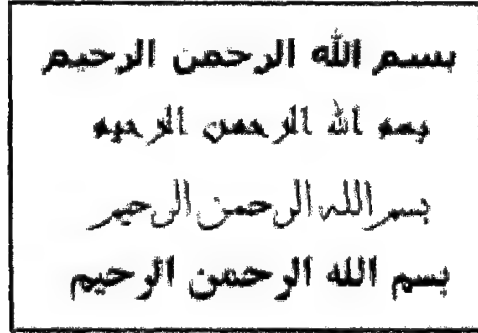 بسم الله الرحمن الرحيم
بسم الله الرحمن الرحيم
بسم الله الرحمن الرحيم
بسم الله الرحمن الرحيم